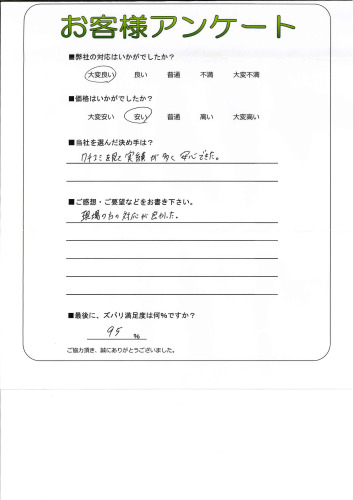 お客様アンケート
■弊社の対応はいかがでしたか？
大変良い 良い 普通 不満 大変不満
■価格はいかがでしたか？
大変安い 安い 普通 高い 大変高い
■当社を選んだ決め手は？
クチコミを見て実績が多く安心できた。
■ご感想・ご要望などをお書き下さい。
現場の方の対応が良かった。
■最後に、ズバリ満足度は何%ですか？
95 %
ご協力頂き、誠にありがとうございました。